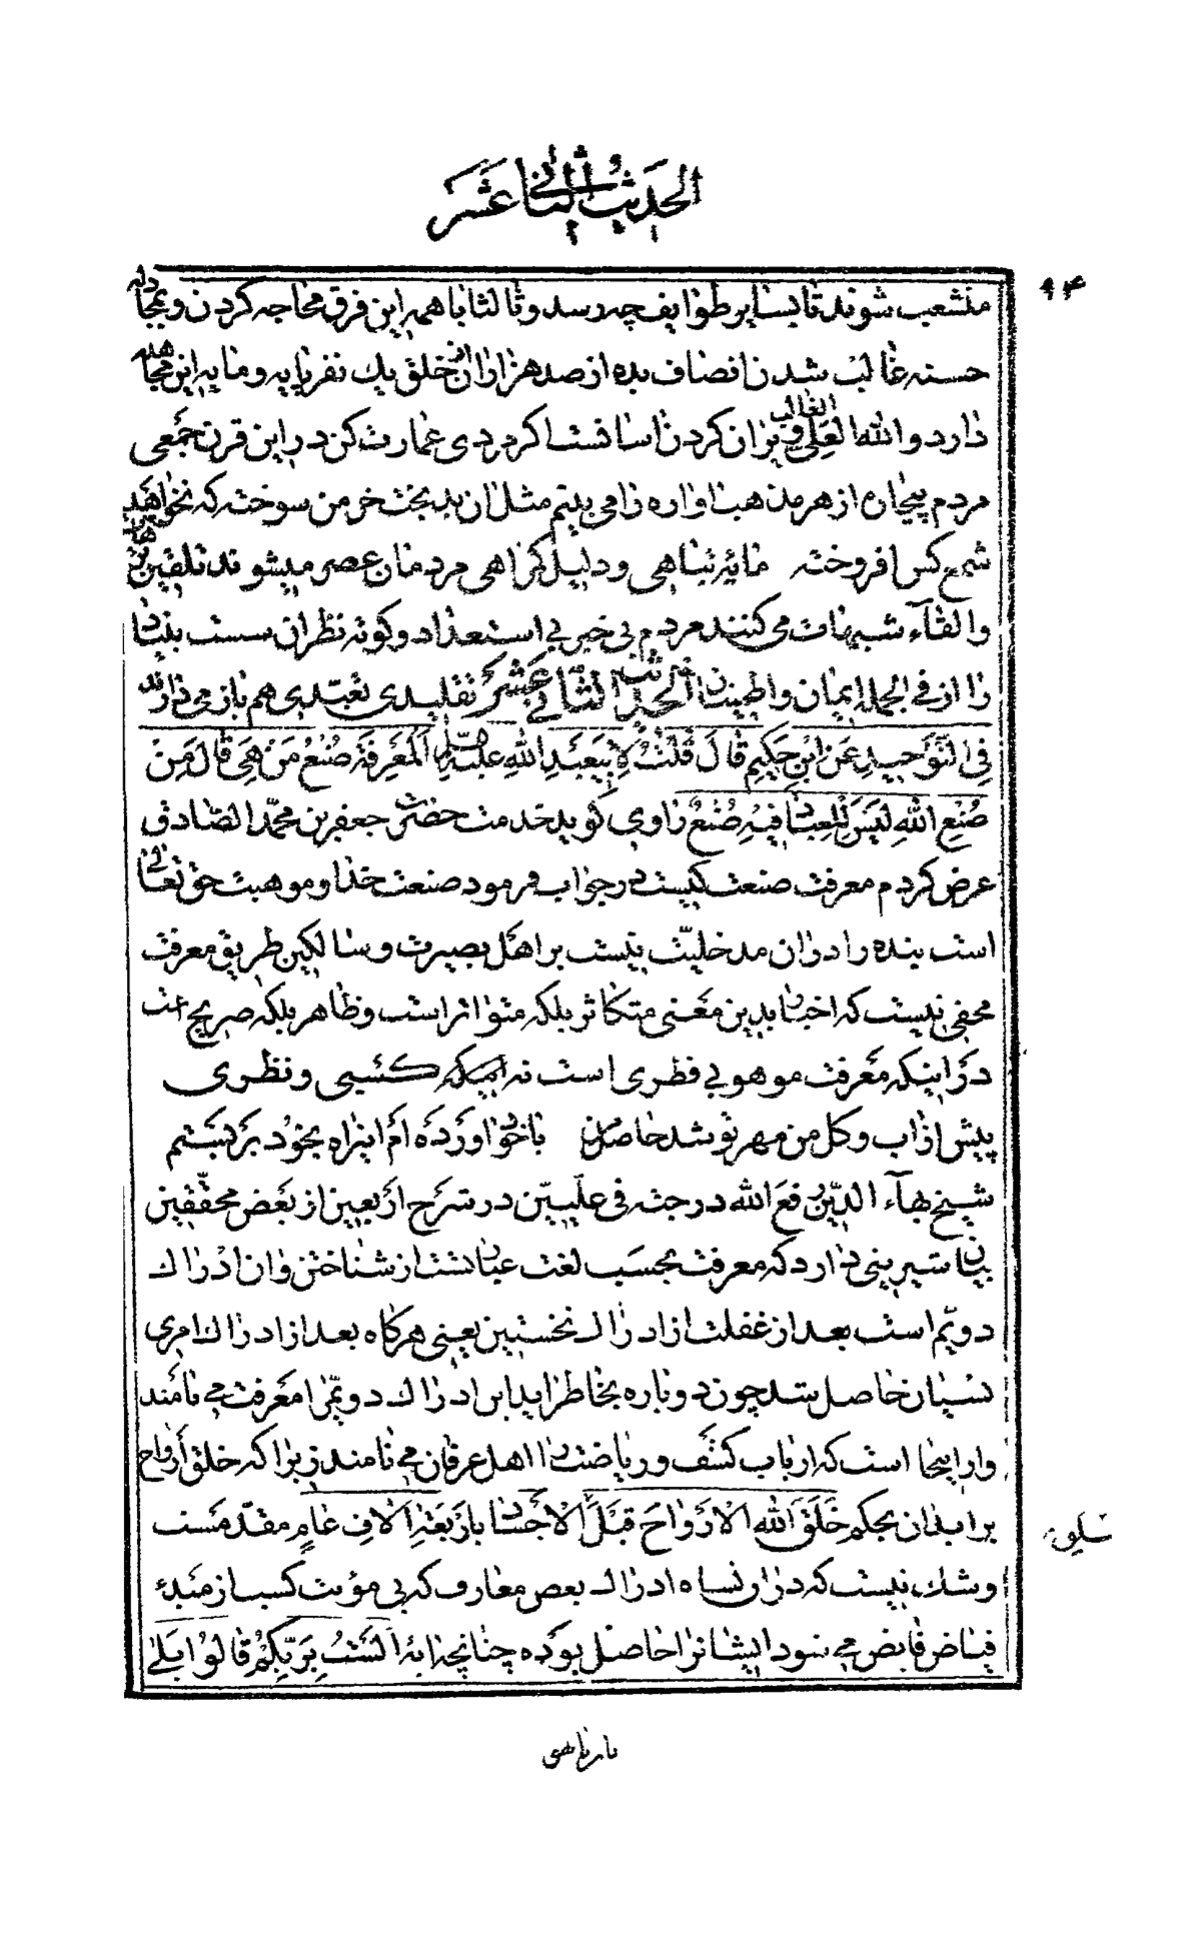 الحدیث الثانی عشر
۹۴
منشعب شوند تا بسایر طوایف چه رسد و ثالثا با همه این فرق محاجه کردن و بمجادله
حسنه غالب شدن انصاف بده از صد هزاران از خلق یك نفر پایه و مایه این مجاهده
دارد والله العلی الغالب ویران کردن اسانست اکر مردی عمارت کن در این قرن جمعی
مردم بیچاره از هر مذهب اواره را می بینم مثل ان بدبخت خرمن سوخته که نخواهد
شمع کس افروخته مایه تباهی و دلیل کمراهی مردمان عصر میشوند تلقین
والقآء شبهات می کنند مردم بی خبر بی استعداد و کوته نظران سست بنیاد
را از فی الجمله ایمان و اطمینان تقلیدی تعبدی هم باز می دارند الحدیث الثانی عشر
فی التوحید عن ابن حکیم قال قلت لابیعبد الله علیه السلم المعرفة صنع من هی قال من
صنع الله لیس للعباد فیه صنع راوی کوید خدمت حضرت جعفر بن محمد الصادق
عرض کردم معرفت صنعت کیست در جواب فرمود صنعت خدا و موهبت حق تعالی
است بنده را در ان مدخلیت نیست بر اهل بصیرت و سالکین طریق معرفت
مخفی نیست که اخبار بدین معنی متکاثر بلکه متواتر است و ظاهر بلکه صریح است
در اینکه معرفت موهوبی فطری است نه اینکه کسبی و نظری
پیش از اب و کل من مهر تو شد حاصل من با خود اورده ام اینراه بخود بر نبستم
شیخ بهآء الدین رفع الله درجته فی علیین در شرح اربعین از بعض محققین
بیان شیرینی دارد که معرفت بحسب لغت عبارتست از شناختن و ان ادراك
دویم است بعد از غفلت از ادراك نخستین یعنی هرکاه بعد از ادراك امری
نسیان حاصل شد چون دوباره بخاطر اید این ادراك دویم را معرفت می نامند
و از اینجا است که ارباب کشف و ریاضت را اهل عرفان می نامند زیرا که خلق ارواح
بر ابدان بحکم خلق الله الارواح قبل الاجساد باربعة الاف عام مقدمست
و شك نیست که در ان نشاه ادراك بعض معارف که بی مؤنت کسب از مبدء
فیاض فایض می شود ایشانرا حاصل بوده چنانچه ایهٔ الست بربکم قالوا بلی